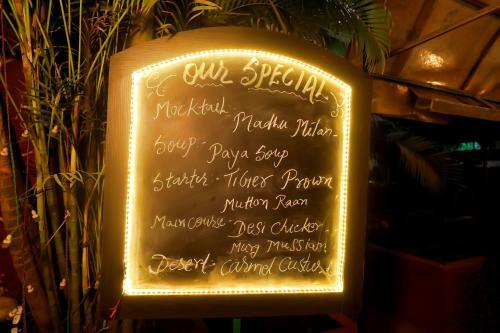 OUR SPECIAL
Mocktail - Madhu Milan -
Soup - Paya Soup
Starter - Tiger Prown
Mutton Raan
Main course - Desi Chicken -
Murg Musslam
Desert - Carmel Custurd